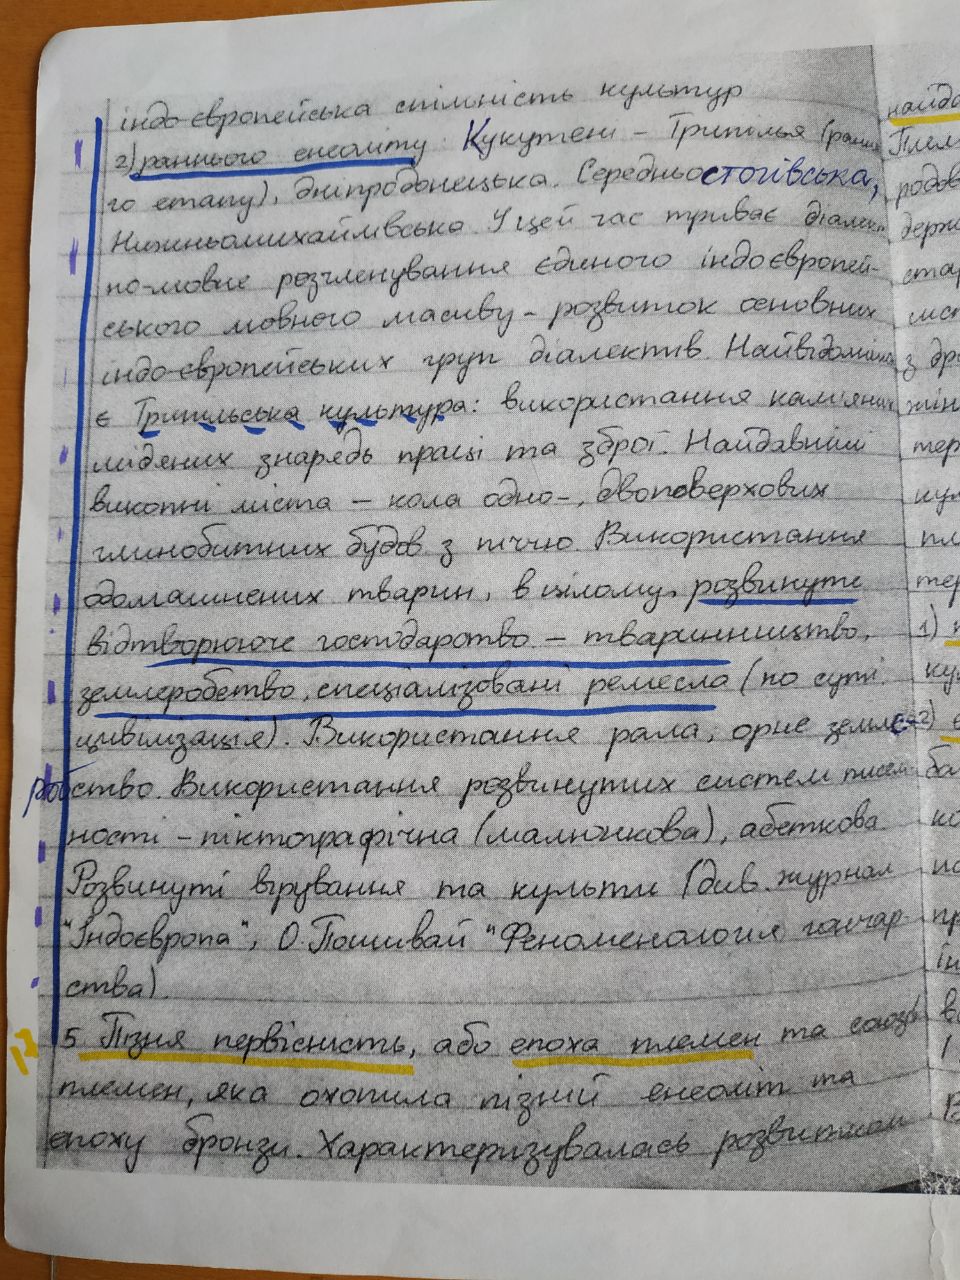 індо-європейська спільність культур
2) раннього енеоліту Кукутені - Трипілля (ранньо
го етапу), дніпродонецька. Середньостогівська,
Нижньомихайлівська. У цей час триває діалект
но-мовне розчленування єдиного індоєвропей-
ського мовного масиву - розвиток основних
індо-європейських груп діалектів. Найвідоміша
є Трипільська культура: використання кам'яних
мідяних знарядь праці та зброї. Найдавніші
викопні міста - кола одно-, двоповерхових
глинобитних будов з піччю. Використання
одомашнених тварин, в цілому, розвинуте
відтворююче господарство - тваринництво,
землеробство, спеціалізовані ремесла (по суті
цивілізація). Використання рала, орне земле-
робство. Використання розвинутих систем писем-
ності - піктографічна (малюнкова), абеткова
Розвинуті вірування та культи (див. журнал
"Індоєвропа", О. Пошивай "Феноменология гончар-
ства).
5 Пізня первісність, або епоха племен та союзів
племен, яка охопила пізній енеоліт та
епоху бронзи. Характеризувалась розвитком
найда
Плем
родов
держ
стар
сист
з др
жін
тер
кул
пл
тер
1)
ку
2)
бо
ко
по
пр
ін